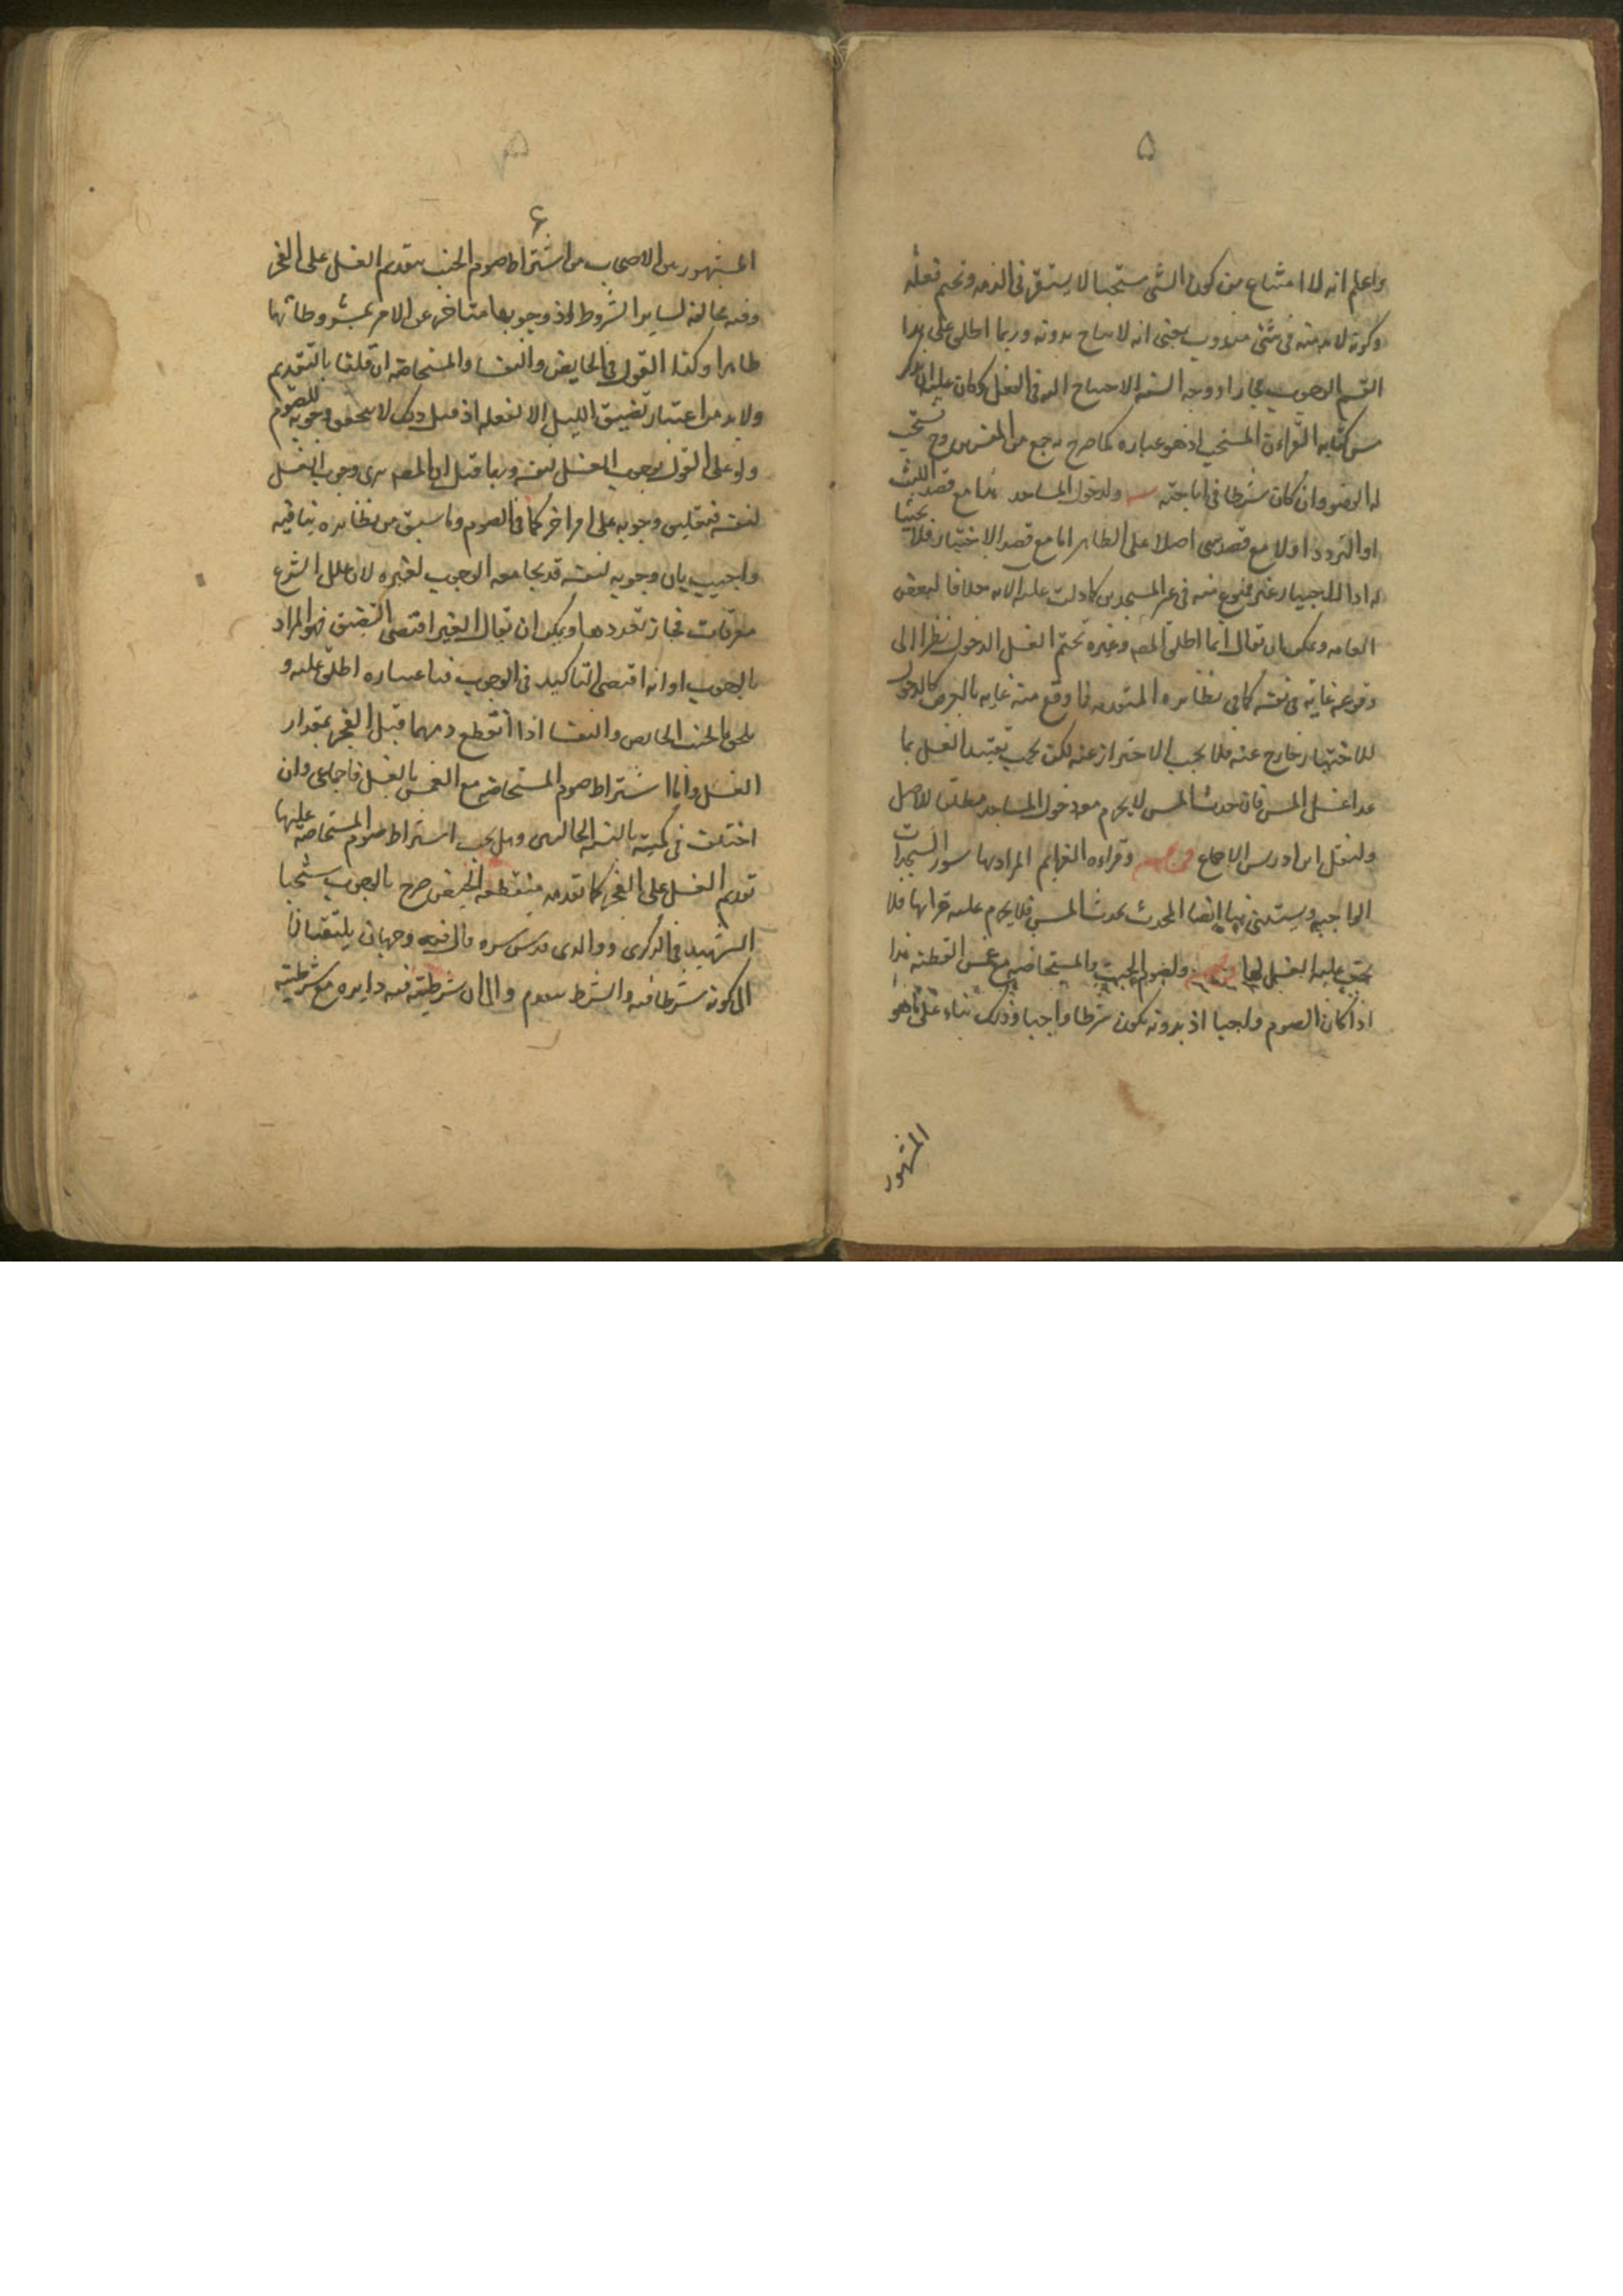 ۵
واعلم انه لا امتناع من كون الشى مستحبا لا يستقر فى الذمه وتحتم فعله
وكونه لا بد منه فى شئ مندوب بمعنى انه لا يباح بدونه وربما اطلق على هذا
القسم الوجوب مجازا ووجه الشبه الاحتياج اليه فى الفعل وكان عليه ان يذكر
مس كتابه القراءة المستحب اذ هو عباره كما صرح به جمع من
له الوضو وان كان شرطا فى اباحته ولدخول المساجد هذا مع قصد اللبث
او التردد اولا مع قصد شى اصلا على الظاهر اما مع قصد الاجتياز فلا
له اذ الاجتياز غير ممنوع منه فى غير المسجدين كما دلت عليه الايه خلافا لبعض
العامه ويمكن ان يقال انما اطلق المصه وغيره تحتم الغسل الدخول نظرا الى
وقوعه غاية فى نفسه كما فى نظائره المتقدمه فما وقع منه غايه بالعرض كالدخول
للاختيار خارج عنه فلا يجب الاحتراز عنه لكن يجب تقييد الغسل بما
عدا غسل المس فان حدث المس لا يحرم معه دخول المساجد مطلقا للاصل
ولنقل ابن ادريس الاجماع وقراءه العزايم المراد بها سور السجدات
الواجبه ويستثنى منها ايضا المحدث بحدث المس فلا يحرم عليه قرائها فلا
يجب عليه الغسل لها ولصوم الجنب والمستحاضه مع غمس القطنه هذا
اذا كان الصوم واجبا اذ بدونه يكون شرطا واجبا وذلك بناء على ما هو
المشهور
۶
المشهور بين الاصحاب من اشتراط صوم الجنب بتقديم الغسل على الفجر
وفيه مخالفه لساير الشروط اذ وجوبها متاخر عن الامر بمشروطاتها
ظاهرا وكذا القول فى الحايض والنفسا والمستحاضه ان قلنا بالتقديم
ولا بد من اعتبار تضيق الليل الا لفعله اذ قبل ذلك لا يتحقق وجوبه للصوم
ولو على القول بوجوب الغسل لنفسه وربما قيل ان المصه يرى وجوب الغسل
لنفسه فتعليق وجوبه على امر اخر كما فى الصوم وما سبق من نظائره ينافيه
واجيب بان وجوبه لنفسه قد يجامعه الوجوب لغيره لان علل الشرع
معرفات فجاز تعددها ويمكن ان يقال الغير اقتضى التضيق فهو المراد
بالوجوب او انه اقتضى التاكيد فى الوجوب فباعتباره اطلق عليه و
يلحق بالجنب الحايض والنفسا اذا انقطع دمهما قبل الفجر بمقدار
الغسل واما اشتراط صوم المستحاضه مع الغمس بالغسل فاجماعى وان
اختلف فى كميته بالنسبه الحالين وهل يجب اشتراط صوم المستحاضه عليها
تقديم الغسل على الفجر كما تقدمه منقطعه الحيض صرح بالوجوب شيخنا
الشهيد فى الذكرى ووالدى قدس سره قال فيه وجهان يلتفتان
الى كونه شرطا فيه والشرط يتقدم والى ان شرطيته فيه دايره مع شرطيته